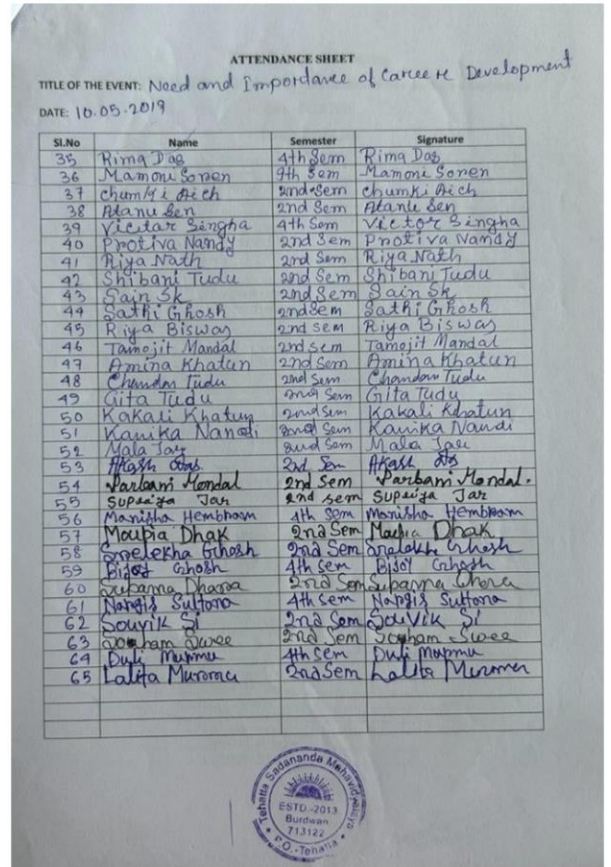 ATTENDANCE SHEET
TITLE OF THE EVENT: Need and Importance of Career Development
DATE: 10.05.2019
Sl.No Name Semester Signature
35 Rima Das 4th Sem Rima Das
36 Mamoni Soren 4th Sem Mamoni Soren
37 Chumki Aich 2nd Sem Chumki Aich
38 Atanu Sen 2nd Sem Atanu Sen
39 Victor Singha 4th Sem Victor Singha
40 Protiva Nandy 2nd Sem Protiva Nandy
41 Riya Nath 2nd Sem Riya Nath
42 Shibani Tudu 2nd Sem Shibani Tudu
43 Sain Sk 2nd Sem Sain Sk
44 Sathi Ghosh 2nd Sem Sathi Ghosh
45 Riya Biswas 2nd Sem Riya Biswas
46 Tamojit Mandal 2nd Sem Tamojit Mandal
47 Amina Khatun 2nd Sem Amina Khatun
48 Chandan Tudu 2nd Sem Chandan Tudu
49 Gita Tudu 2nd Sem Gita Tudu
50 Kakali Khatun 2nd Sem Kakali Khatun
51 Kanika Nandi 2nd Sem Kanika Nandi
52 Mala 2nd Sem Mala
53 Akash Das 2nd Sem Akash
54 Parbani Mondal 2nd Sem Parbani Mondal.
55 Supriya Jar 2nd sem Supriya Jar
56 Manisha Hembram 4th Sem Manisha Hembram
57 Moupia Dhak 2nd Sem Moupia Dhak
58 Ghosh 2nd Sem Ghosh
59 Bijoy Ghosh 4th Sem Bijoy Ghosh
60 Suparna 2nd Sem Suparna
61 Nargis Sultana 4th Sem Nargis Sultana
62 Souvik Si 2nd Sem Souvik Si
63 2nd Sem
64 Duli Murmu 4th Sem Duli Murmu
65 Lalita Murmu 2nd Sem Lalita Murmu
Tehatta Sadananda Mahavidyalaya
ESTD.-2013
Burdwan
713122
P.O.-Tehatta